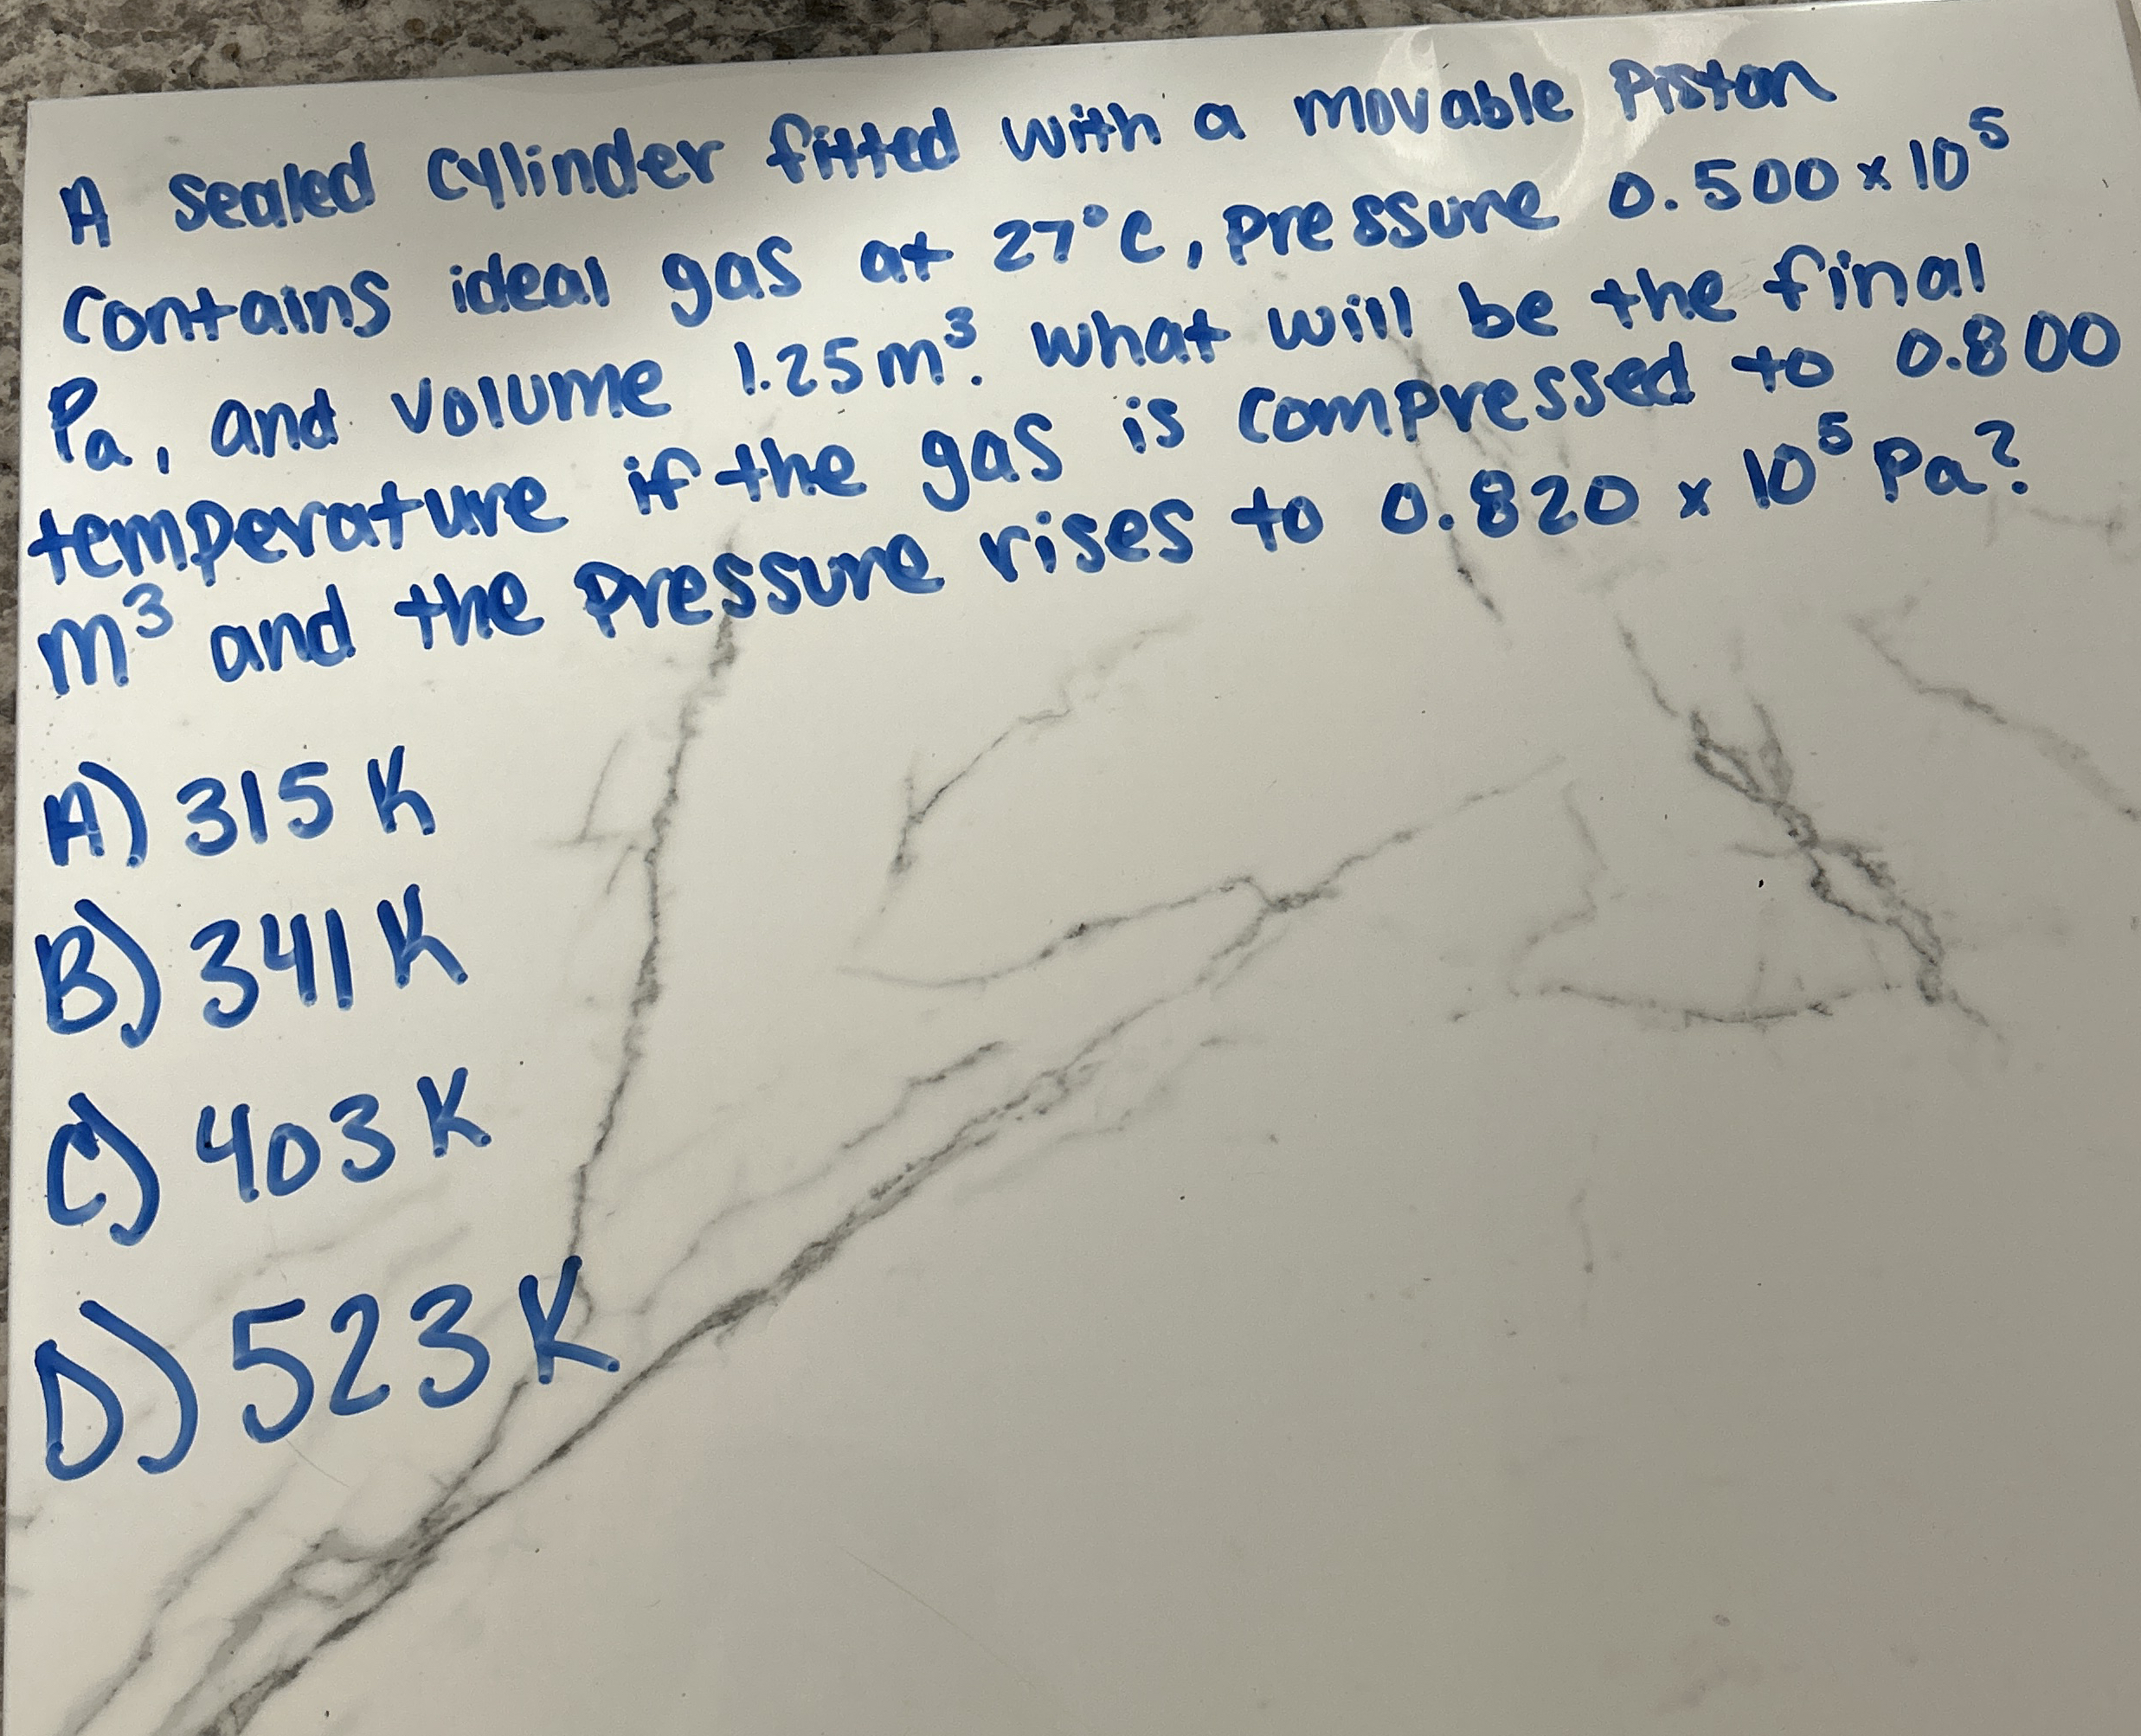 A sealed cylinder fitted with a movable Piston
contains ideal gas at 27°C, pressure 0.500 x 10⁵
Pa, and volume 1.25m³. what will be the final
temperature if the gas is compressed to 0.800
m³ and the pressure rises to 0.820 x 10⁵ Pa?
A) 315 K
B) 341 K
C) 403 K
D) 523 K